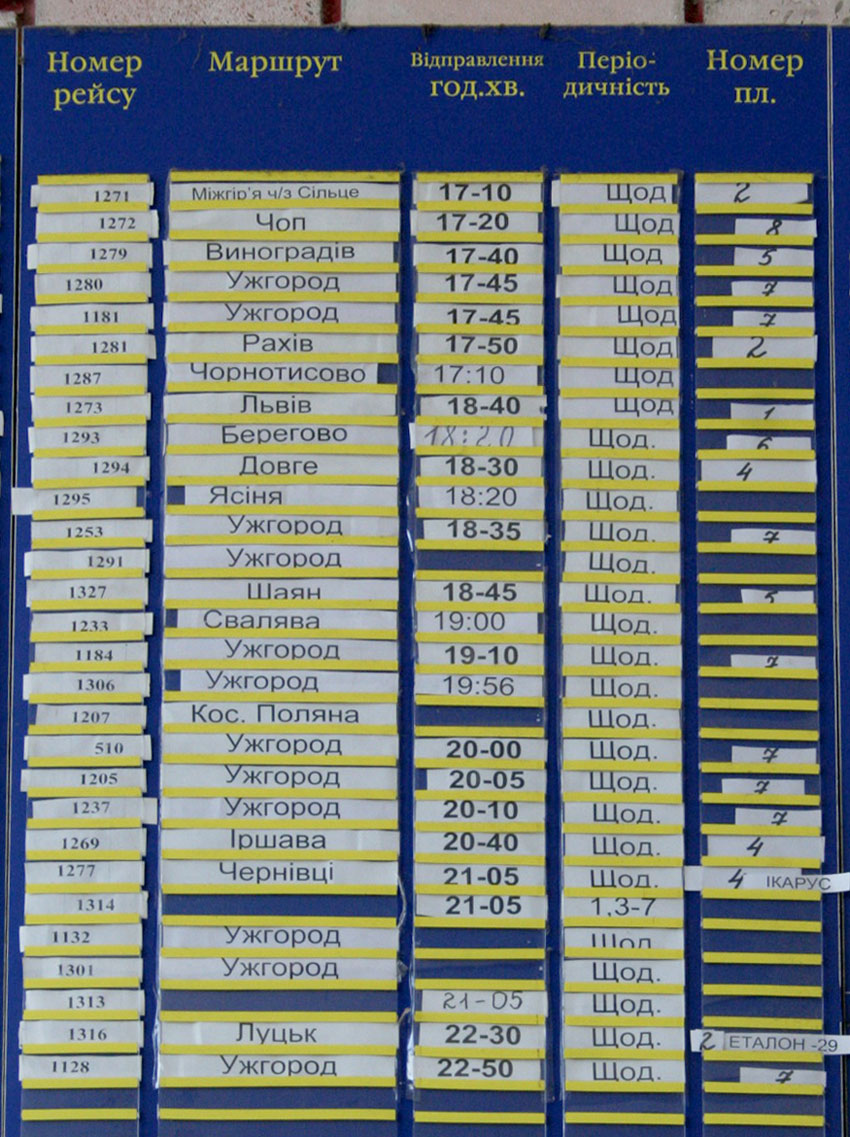 Номер рейсу Маршрут Відправлення год.хв. Періодичність Номер пл.
1271 Міжгір'я ч/з Сільце 17-10 Щод 2
1272 Чоп 17-20 Щод 8
1279 Виноградів 17-40 Щод 5
1280 Ужгород 17-45 Щод 7
1181 Ужгород 17-45 Щод 7
1281 Рахів 17-50 Щод 2
1287 Чорнотисово 17:10 Щод
1273 Львів 18-40 Щод 1
1293 Берегово 18:20 Щод. 6
1294 Довге 18-30 Щод. 4
1295 Ясіня 18:20 Щод.
1253 Ужгород 18-35 Щод. 7
1291 Ужгород Щод.
1327 Шаян 18-45 Щод. 5
1233 Свалява 19:00 Щод.
1184 Ужгород 19-10 Щод. 7
1306 Ужгород 19:56 Щод.
1207 Кос. Поляна Щод.
510 Ужгород 20-00 Щод. 7
1205 Ужгород 20-05 Щод. 7
1237 Ужгород 20-10 Щод. 7
1269 Іршава 20-40 Щод. 4
1277 Чернівці 21-05 Щод. 4 ІКАРУС
1314 21-05 1,3-7
1132 Ужгород Щод.
1301 Ужгород Щод.
1313 21-05 Щод.
1316 Луцьк 22-30 Щод. 2 ЕТАЛОН -29
1128 Ужгород 22-50 Щод. 7